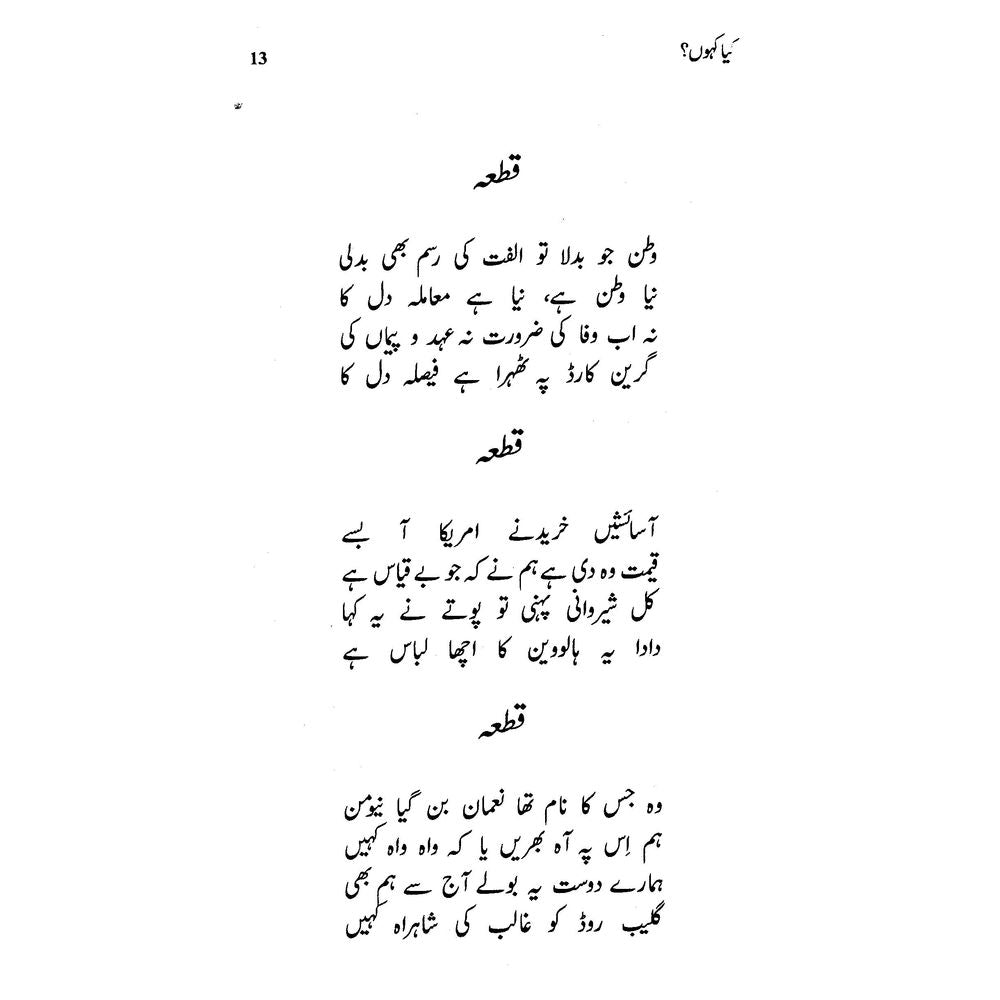 کیا کہوں؟
13
قطعہ
وطن جو بدلا تو الفت کی رسم بھی بدلی
نیا وطن ہے، نیا ہے معاملہ دل کا
نہ اب وفا کی ضرورت نہ عہد و پیماں کی
گرین کارڈ پہ ٹھہرا ہے فیصلہ دل کا
قطعہ
آسائشیں خریدنے امریکا آ بسے
قیمت وہ دی ہے ہم نے کہ جو بے قیاس ہے
کل شیروانی پہنی تو پوتے نے یہ کہا
دادا یہ ہالووین کا اچھا لباس ہے
قطعہ
وہ جس کا نام تھا نعمان بن گیا نیومن
ہم اِس پہ آہ بھریں یا کہ واہ واہ کہیں
ہمارے دوست یہ بولے آج سے ہم بھی
گلیب روڈ کو غالب کی شاہراہ کہیں